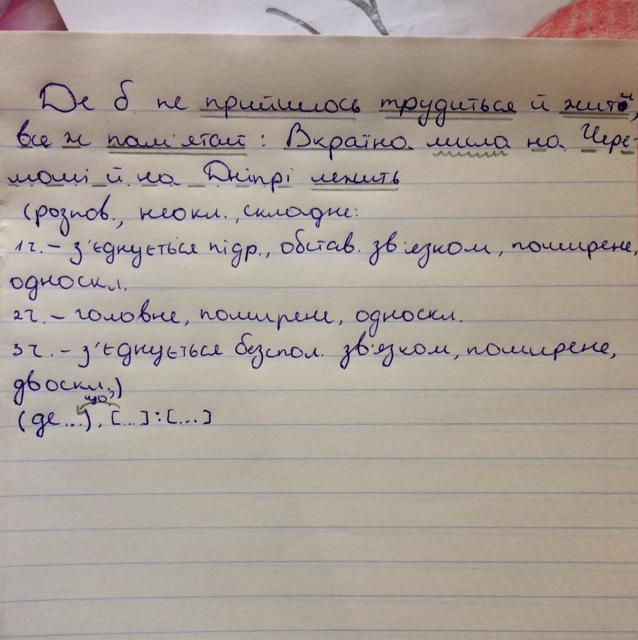 Де б не прийшлось трудиться й жить,
все ж пам'ятай: Вкраїна мила на Чере-
моші й на Дніпрі лежить
(розпов., неокл., складне:
1 ч. - з'єднується підр., обстав. зв'язком, поширене,
односкл.
2 ч. - головне, поширене, односкл.
3 ч. - з'єднується безспол. зв'язком, поширене,
двоскл.)
що?
(де...), [...]:[...]